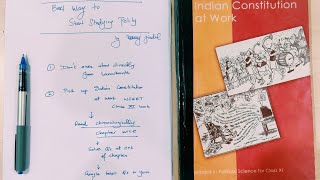 Best Way to
Start Studying Polity
by
① Don't ever start directly
from Laxmikanth
② Pick up Indian Constitution
at work NCERT
Class XI book
Read chronologically
chapter wise
Solve Qs at end
of chapter
Indian Constitution
at Work
Textbook in Political Science for Class XI